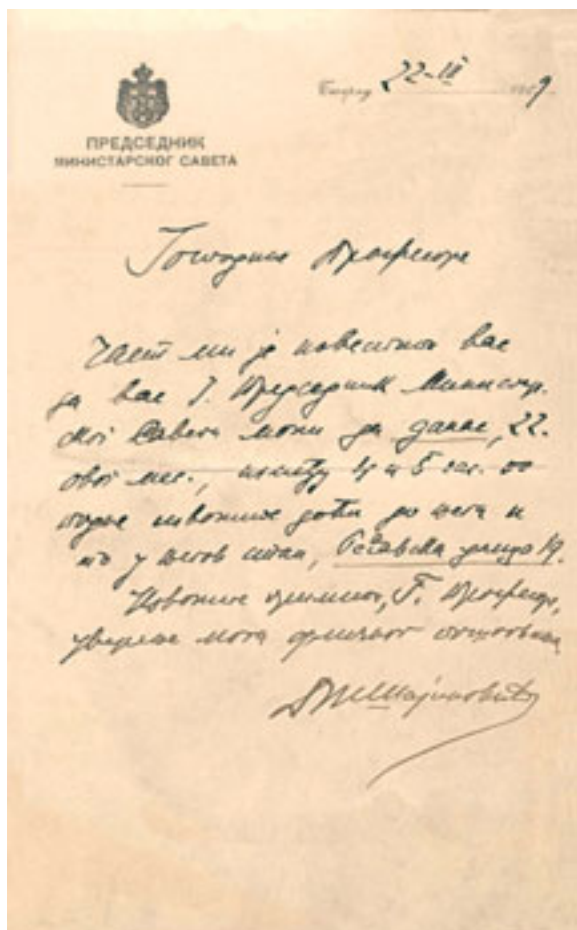 Београд 22-III 1909
ПРЕДСЕДНИК
МИНИСТАРСКОГ САВЕТА
Господине Професоре
Част ми је известити вас
да вас Г. Председник Министар.
ског Савета моли да данас, 22.
овог мес., између 4 и 5 час. по
подне изволите доћи до њега и
то у његов стан, Ресавска улица 19.
Изволите примити, Г. Професоре,
уверење мога одличног поштовања